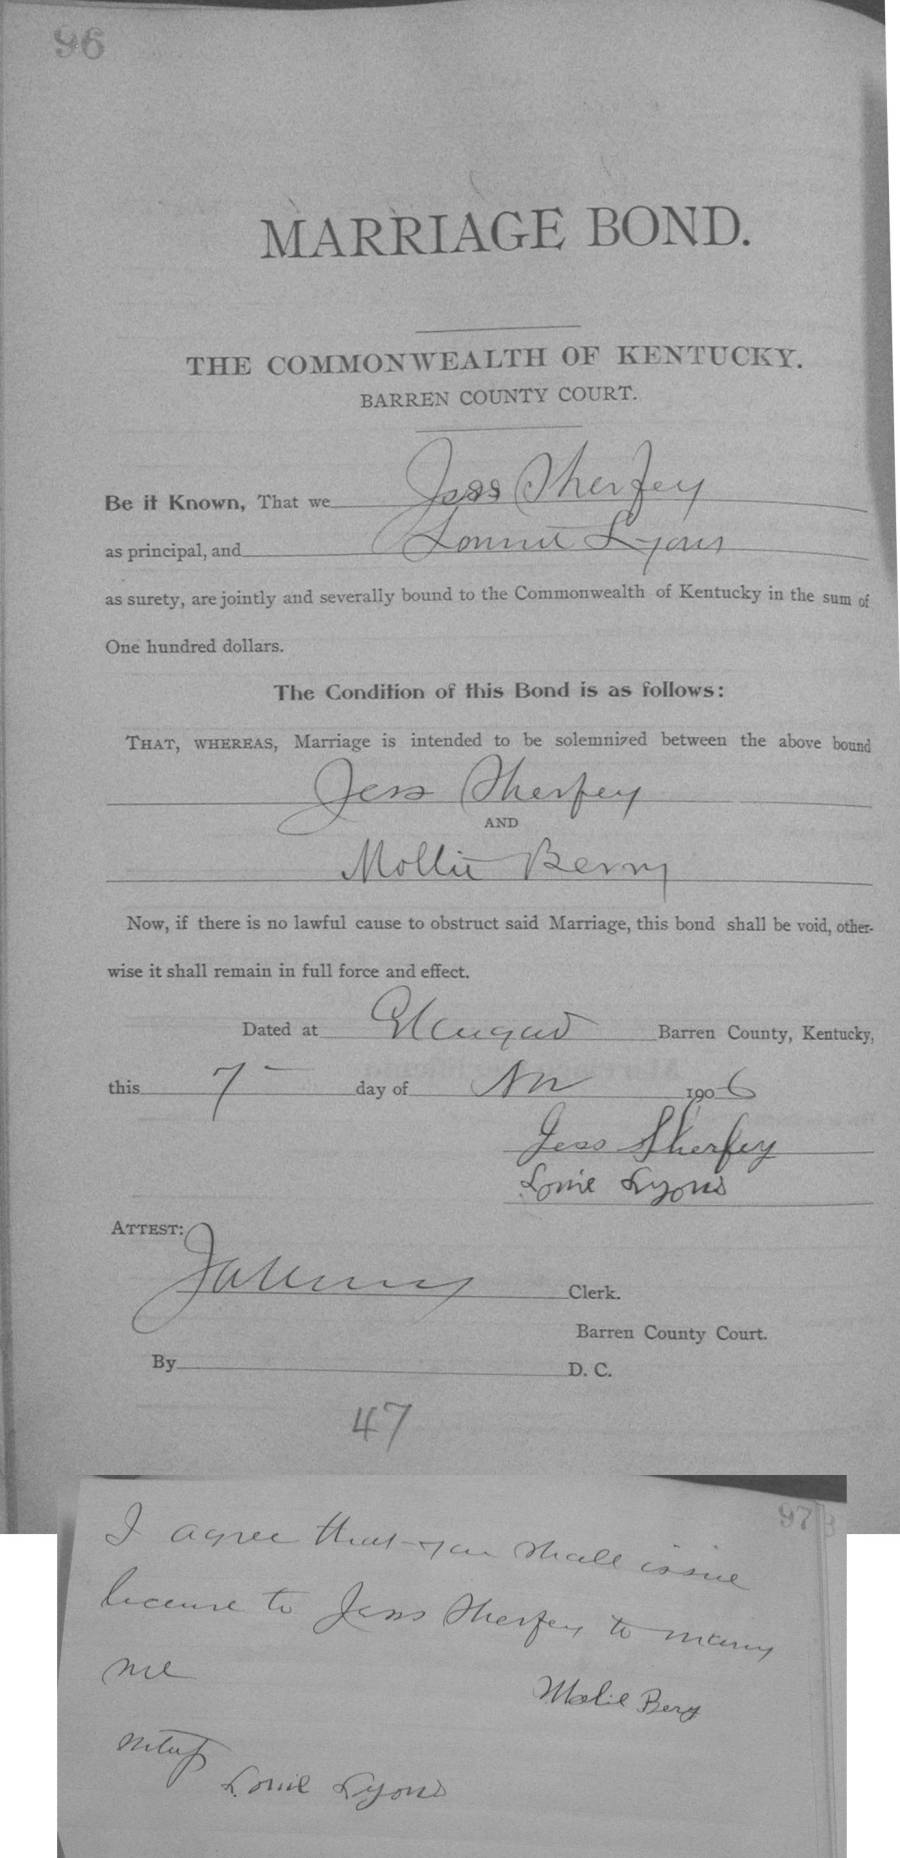 96
MARRIAGE BOND.
THE COMMONWEALTH OF KENTUCKY.
BARREN COUNTY COURT.
Be it Known, That we Jess Sherfey
as principal, and Lonnie Lyons
as surety, are jointly and severally bound to the Commonwealth of Kentucky in the sum of
One hundred dollars.
The Condition of this Bond is as follows:
THAT, WHEREAS, Marriage is intended to be solemnized between the above bound
Jess Sherfey
AND
Mollie Berry
Now, if there is no lawful cause to obstruct said Marriage, this bond shall be void, other-
wise it shall remain in full force and effect.
Dated at Glasgow Barren County, Kentucky,
this 7 - day of Nov 1906
Jess Sherfey
Lonie Lyons
ATTEST:
Clerk.
Barren County Court.
By D. C.
47
97
I agree that you shall issue
license to Jess Sherfey to marry
me
Molie Bery
Lonie Lyons